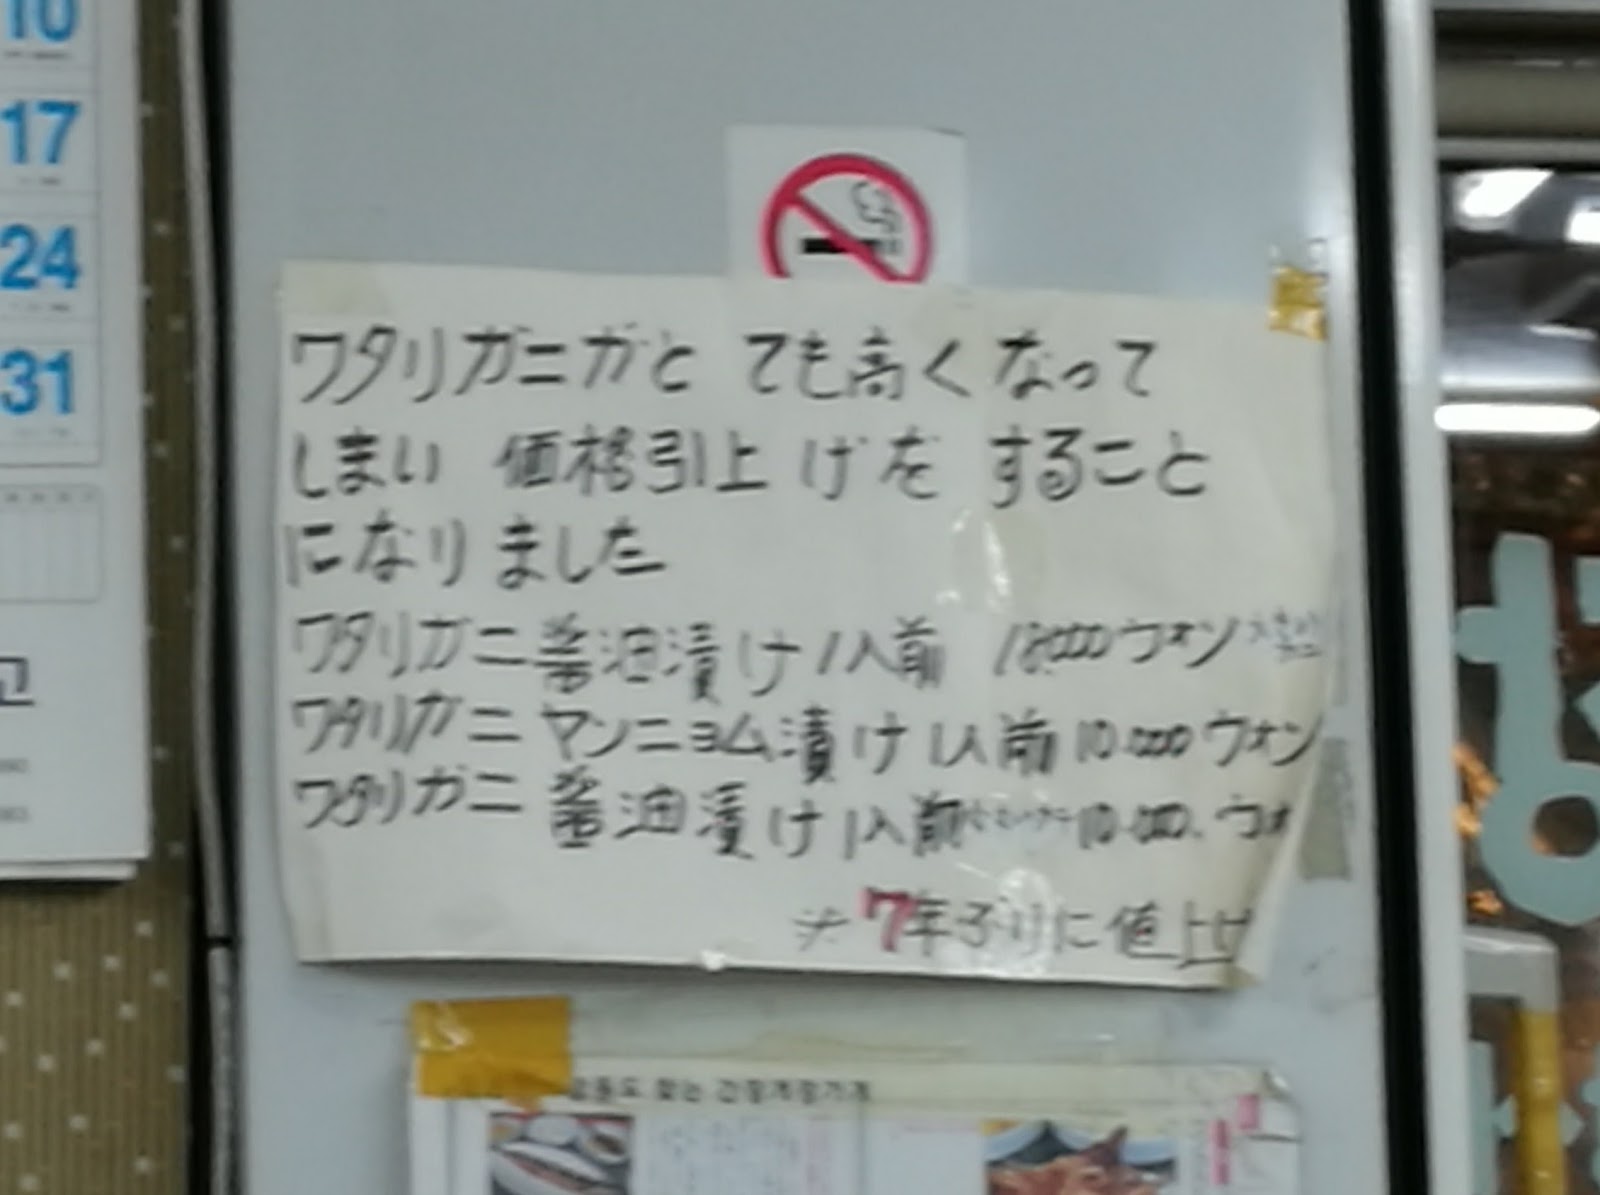 10
17
24
31
고
ワタリガニガとても高くなって
しまい 価格引上げをすること
になりました
ワタリガニ醤油漬け1人前 18,000ウォン
ワタリガニヤンニョム漬け1人前10.000ウォン
ワタリガニ醤油漬け1人前 10.000.ウォ
※7年ぶりに値上げ
찾는 간장게장가게